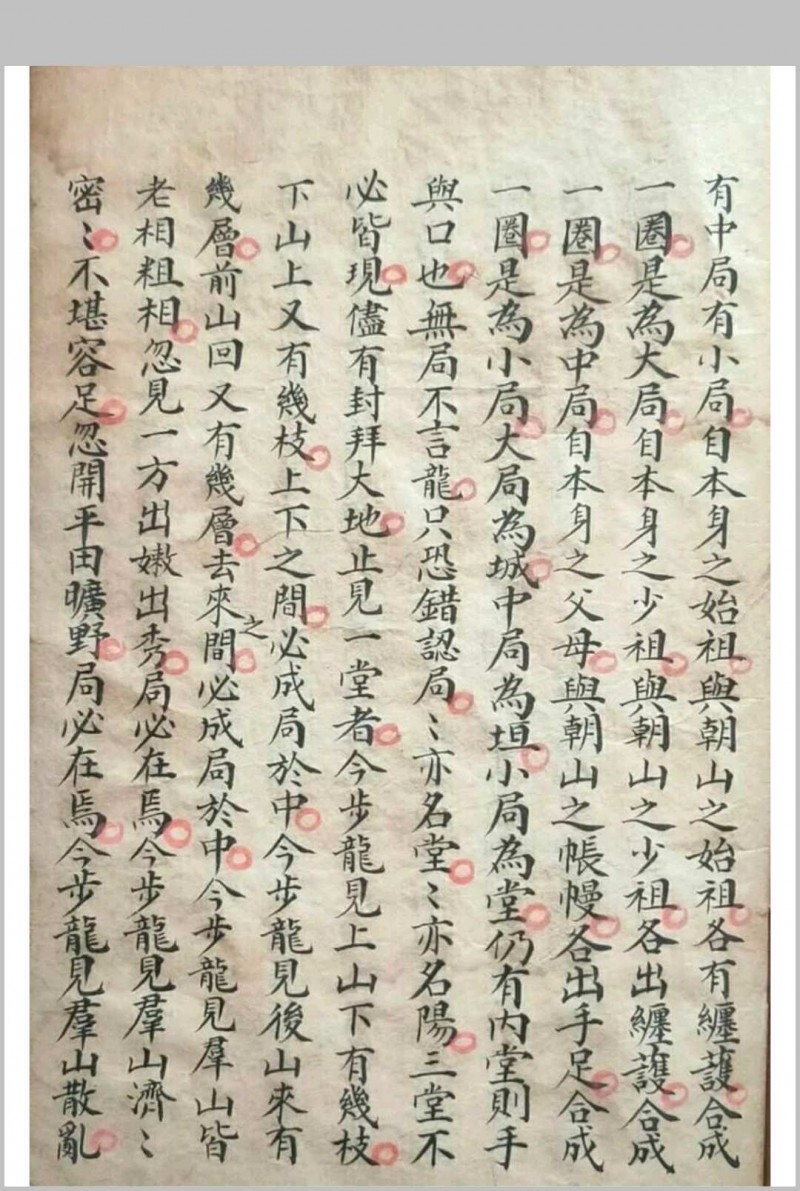 有中局有小局自本身之始祖與朝山之始祖各有纏護合成
一圈是為大局自本身之少祖與朝山之少祖各出纏護合成
一圈是為中局自本身之父母與朝山之帳幔各出手足合成
一圈是為小局大局為城中局為垣小局為堂仍有內堂則手
與口也無局不言龍只恐錯認局〻亦名堂〻亦名陽三堂不
必皆現儘有封拜大地止見一堂者今步龍見上山下有幾枝
下山上又有幾枝上下之間必成局於中今步龍見後山來有
幾層前山回又有幾層去來之間必成局於中今步龍見羣山皆
老相粗相忽見一方出嫩出秀局必在焉今步龍見羣山濟〻
密〻不堪容足忽開平田曠野局必在焉今步龍見羣山散亂